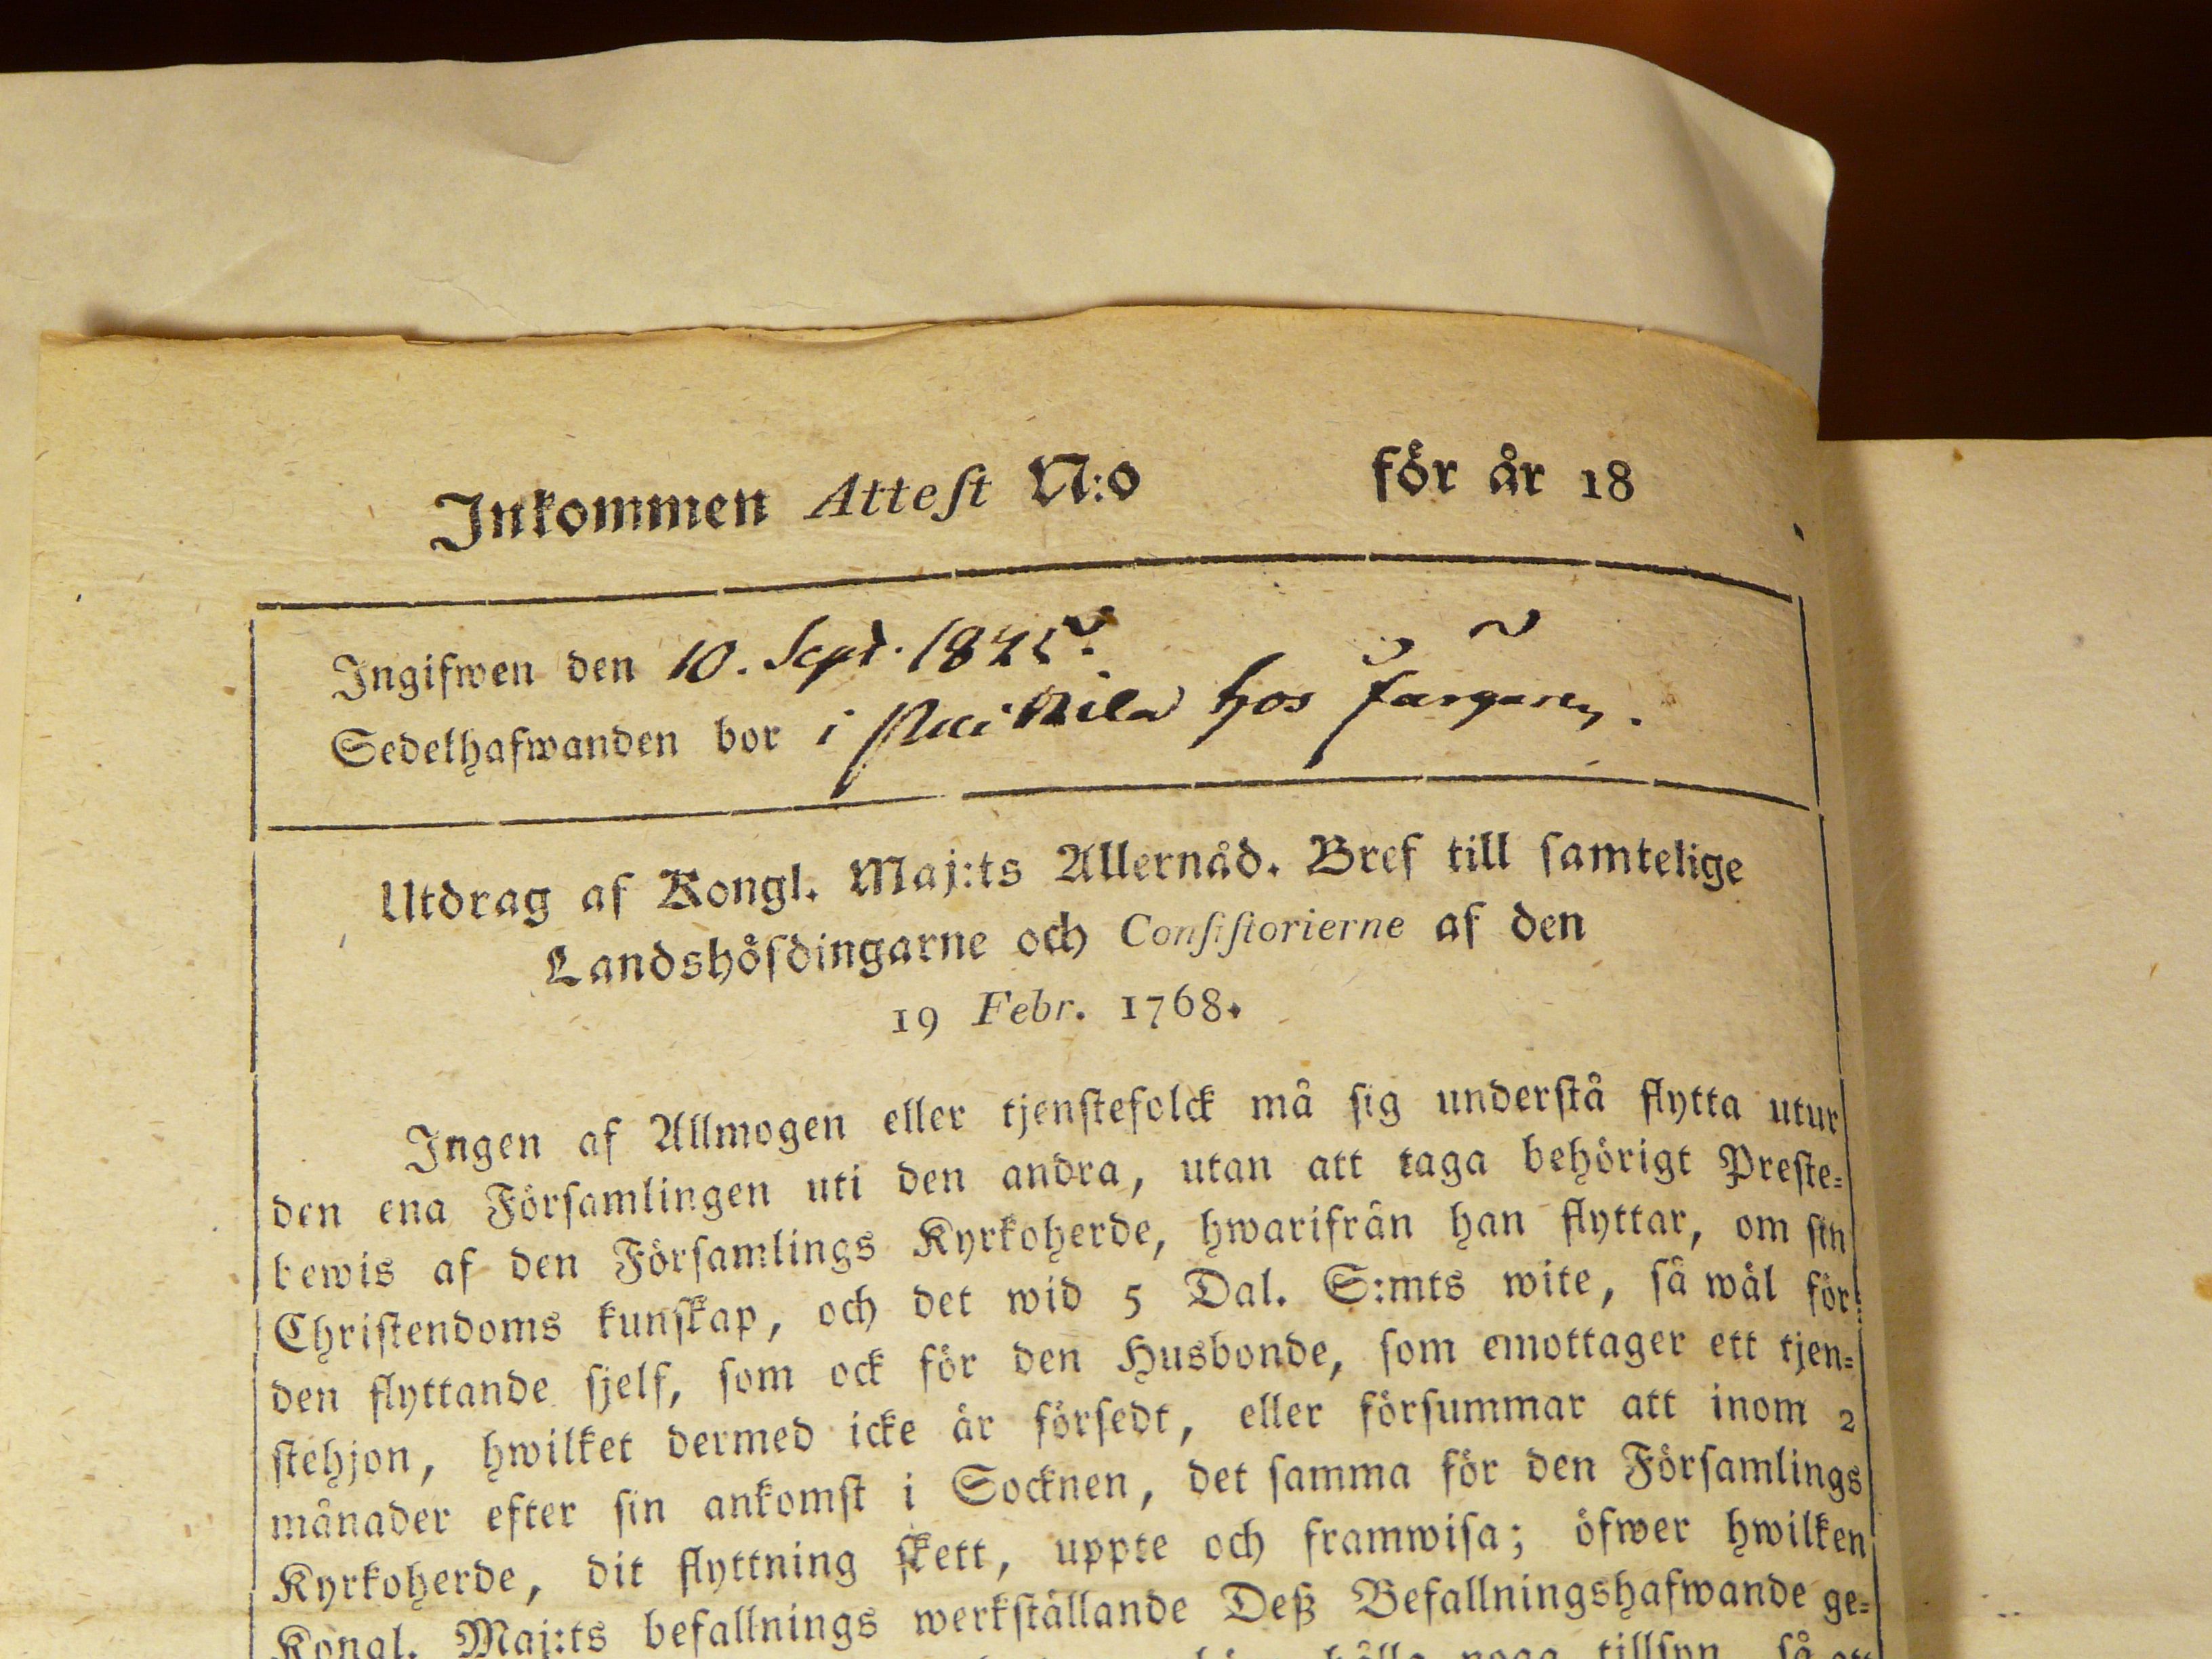 Inkommen Attest N:o för år 18
Ingifwen den 10. Sept. 1825.
Sedelhafwanden bor i hos
Utdrag af Kongl. Maj:ts Allernåd. Bref till samtelige
Landshöfdingarne och Consistorierne af den
19 Febr. 1768.
Ingen af Allmogen eller tjenstefolck må sig understå flytta utur
den ena Församlingen uti den andra, utan att taga behörigt Preste=
bewis af den Församlings Kyrkoherde, hwarifrån han flyttar, om sin
Christendoms kunskap, och det wid 5 Dal. S:mts wite, så wäl för
den flyttande sjelf, som ock för den Husbonde, som emottager ett tjen=
stehjon, hwilket dermed icke är försedt, eller försummar att inom 2
månader efter sin ankomst i Socknen, det samma för den Församlings
Kyrkoherde, dit flyttning skett, uppte och framwisa; öfwer hwilken
Kongl. Maj:ts befallnings werkställande Deß Befallningshafwande ge=
hålla noga tillsyn, så att